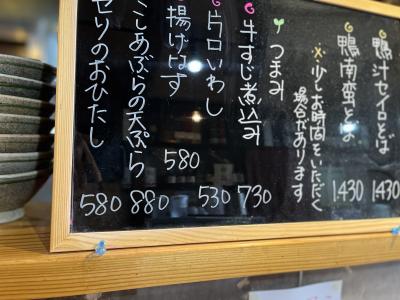 鴨汁セイロそば 1430
鴨南蛮そば 1430
※少しお時間をいただく
場合があります
つまみ
牛すじ煮込み 730
片口いわし 530
揚げはす 580
こしあぶらの天ぷら 880
セリのおひたし 580